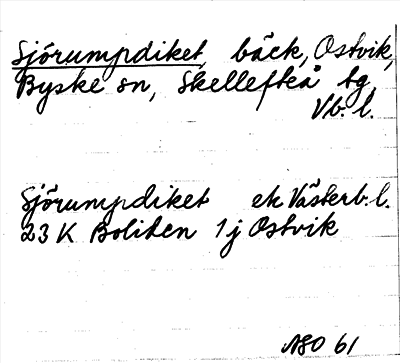 Sjörumpdiket, bäck, Ostvik,
Byske sn, Skellefteå tg,
Vb. l.
Sjörumpdiket ek Västerb. l.
23 K Boliden 1 j Ostvik
ASO 61